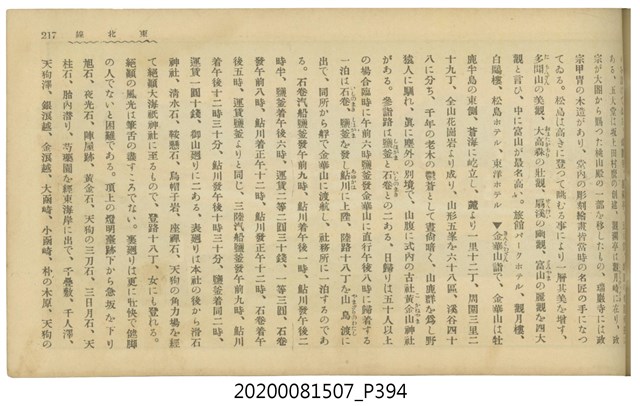 217　東北線
ある。五大堂は坂上田村麿の創建、
宗が太閤から賜つた桃山殿の一部を移したもの、瑞巖寺には政
宗甲冑の木造があり、堂内の彫刻繪畫皆當時の名匠の手になつ
てゐる。松島は高きに登つて眺める事により一層其美を增す、
多聞山の美觀、大高森の壯觀、扇溪の幽觀、富山の麗觀を四大
觀と言ひ、中に富山が最名高い。旅館 パークホテル、觀月樓、
白鷗樓、松島ホテル、東洋ホテル ▼金華山詣で、金華山は牡
鹿半島の東側、蒼海に屹立し、麓より一里十二丁、周圍三里二
十九丁、全山花崗岩より成り、山形五峯を六十八區、溪谷四十
八に分ち、千年の老木の鬱蒼として晝尚暗く、山鹿群を爲し野
猿人に馴れ、眞に塵外の別境で、山腹に式內の古社黃金山神社
がある。參詣路は鹽釜と石卷との二ある、日歸りは五十人以上
の場合臨時に午前六時鹽釜發金華山に直行午後八時に歸着する
一泊は石卷、鹽釜を發し鮎川に上陸、陸路十八丁を山鳥渡に
出で、同所から艀で金華山に渡航し、社務所に一泊するのであ
る。石卷汽船鹽釜發午前九時、鮎川着午後一時、鮎川發午後二
時半、鹽釜着午後六時、運賃二等二圓三十錢、一等三圓、石卷
發午前八時、鮎川着正午十二時、鮎川發正午十二時、石卷着午
後五時、運賃鹽釜よりと同じ、三陸汽船鹽釜發午前九時、鮎川
着午後十二時三十分、鮎川發午後十時三十分、鹽釜着同二時、
運賃一圓十錢、御山廻りに二ある、表廻りは本社の後から滑石
神社、淸水石、鞍懸石、烏帽子岩、座禪石、天狗の角力場を經
て絕巓大海祇神社に至るもので、登路十八丁、女にも登れる。
絕巓の風光は筆舌の盡すところでない。裏廻りは更に壯快で健脚
の人でないと困難である。頂上の燈明臺跡下から急坂を下り
旭石、夜光石、陣屋跡、黃金石、天狗の三刀石、三日月石、天
柱石、胎內潛り、芍藥園を經東海岸に出で、千疊敷、千人澤、
天狗澤、銀溟越、金溟越、大凾崎、小凾崎、朴の木原、天狗の
20200081507_P394